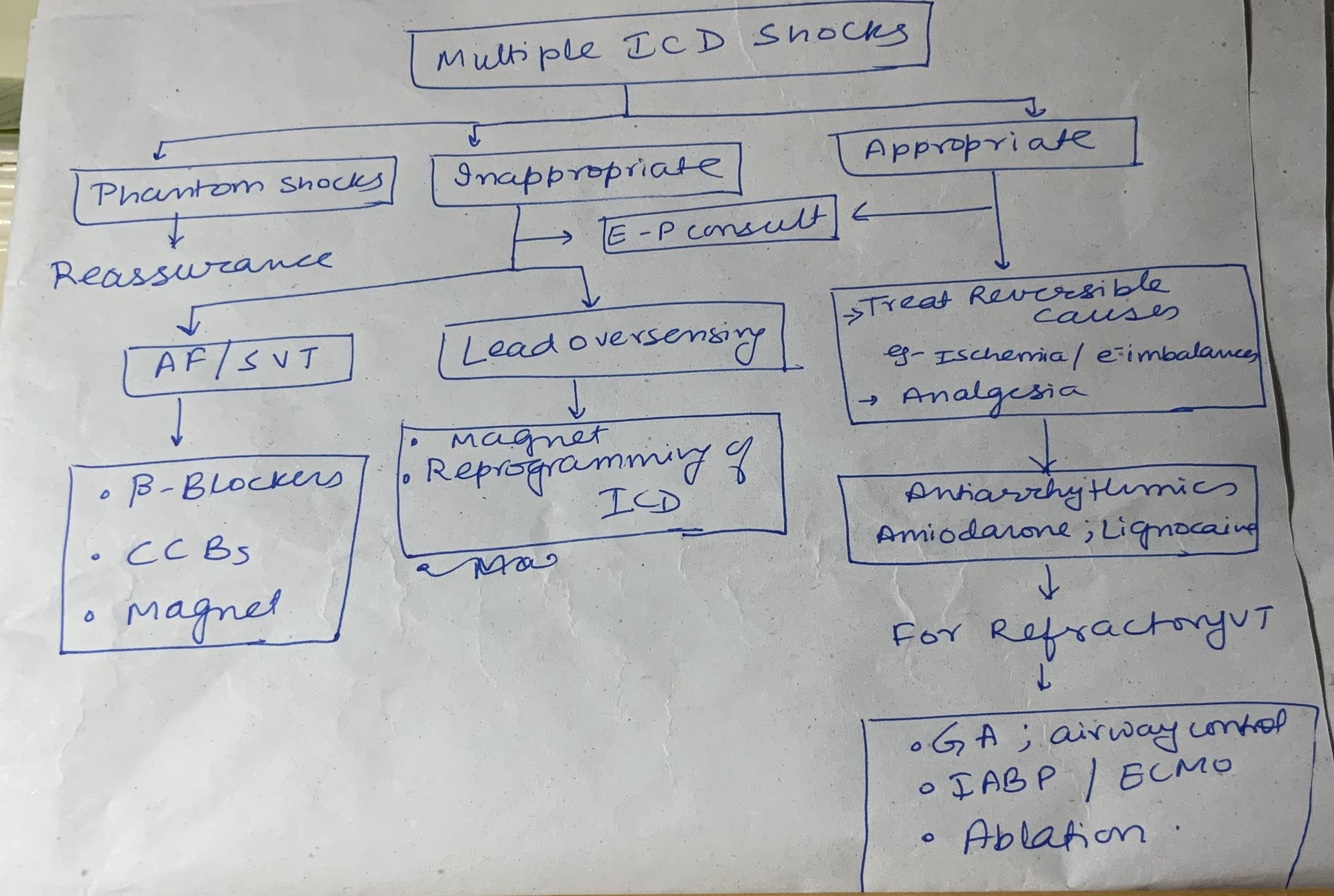 Multiple ICD Shocks
Phantom shocks
Inappropriate
Appropriate
E-P consult
Reassurance
AF/SVT
Lead oversensing
→ Treat Reversible
causes
eg- Ischemia / e- imbalances
→ Analgesia
• β-Blockers
• CCBs
• Magnet
• Magnet
• Reprogramming of
ICD
Ma
Antiarrhythmics
Amiodarone ; Lignocaine
For Refractory VT
• GA ; airway control
• IABP / ECMO
• Ablation